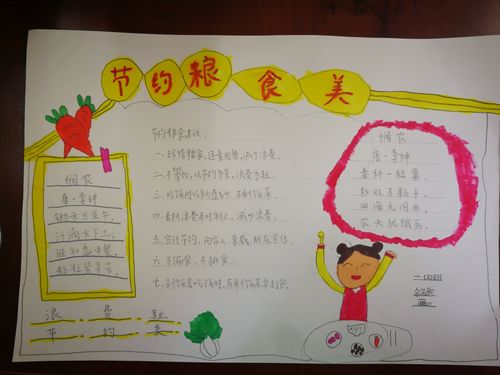 节约粮食美
悯农
唐·李绅
锄禾日当午。
汗滴禾下土。
谁知盘中餐。
粒粒皆辛苦。
浪费耻
节约美
节约粮食建议:
一、珍惜粮食,适量用餐,减少浪费。
二、不攀比,以节约为荣,浪费为耻。
三、吃饭时吃多少盛多少,不剩饭菜。
四、看到浪费及时制止,减少浪费。
五、宣传节约,向家人、亲戚、朋友宣传。
六、不偏食、不挑食。
七、到饭店吃饭时,有剩饭菜要打包。
悯农
唐·李绅
春种一粒粟。
秋收万颗子。
四海无闲田。
农夫犹饿死。